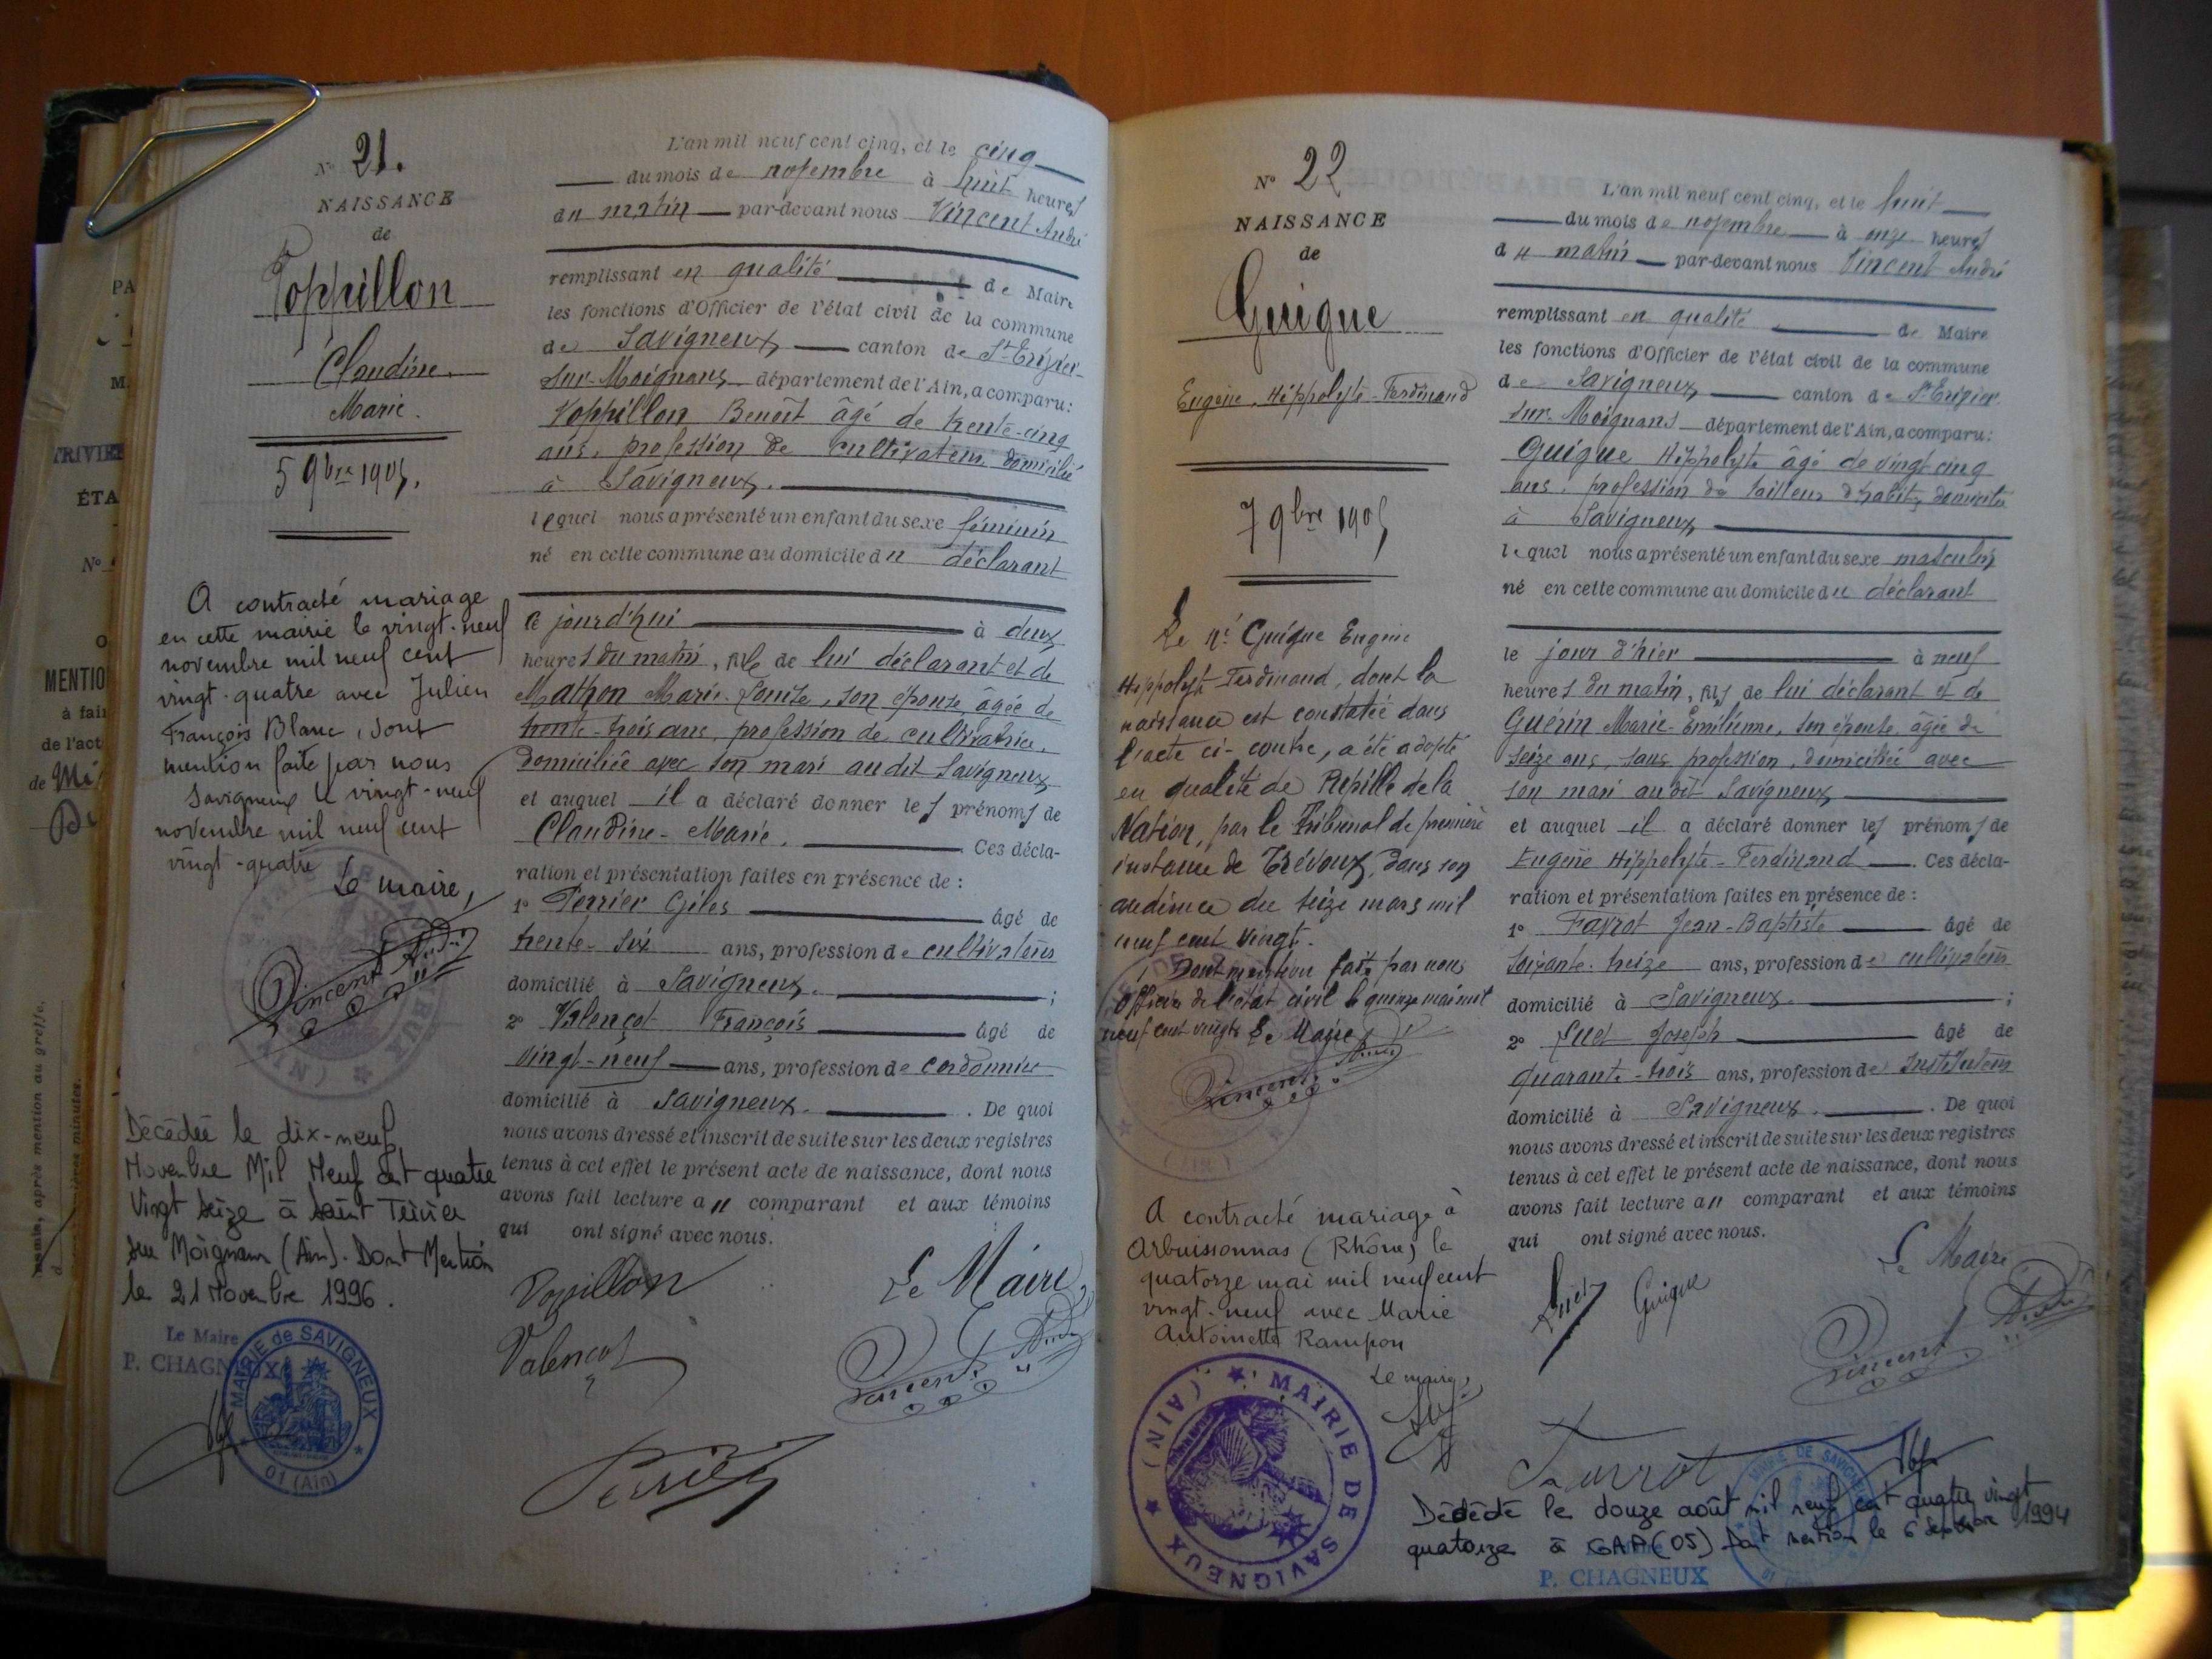 N° 21.
NAISSANCE
de
Poppillon
Claudine
Marie.
5 9bre 1905.
A contracté mariage
en cette mairie le vingt-neuf
novembre mil neuf cent
vingt-quatre avec Julien
François Blanc, dont
mention faite par nous
Savigneux le vingt-neuf
novembre mil neuf cent
vingt-quatre
Le maire,
Vincent André
Décédée le dix-neuf
Novembre Mil Neuf cent quatre
Vingt seize à Saint Trivier
sur Moignans (Ain). Dont Mention
le 21 Novembre 1996.
Le Maire
P. CHAGNEUX
MAIRIE de SAVIGNEUX
01 (Ain)
L'an mil neuf cent cinq, et le cinq
du mois de novembre à huit heures
du matin par-devant nous Vincent André
remplissant en qualité de Maire
les fonctions d'Officier de l'état civil de la commune
de Savigneux canton de St-Trivier-
sur-Moignans département de l'Ain, a comparu:
Poppillon Benoît âgé de trente-cinq
ans, profession de cultivateur, domicilié
à Savigneux.
lequel nous a présenté un enfant du sexe féminin
né en cette commune au domicile du déclarant
ce jourd'hui à deux
heures du matin, fille de lui déclarant et de
Mathon Marie-Louise, son épouse âgée de
trente-trois ans, profession de cultivatrice,
domiciliée avec son mari audit Savigneux
et auquel il a déclaré donner les prénoms de
Claudine-Marie. Ces décla-
ration et présentation faites en présence de :
1° Perrier Giles âgé de
trente-six ans, profession de cultivateur
domicilié à Savigneux. ;
2° Valençot François âgé de
vingt-neuf ans, profession de cordonnier
domicilié à Savigneux. . De quoi
nous avons dressé et inscrit de suite sur les deux registres
tenus à cet effet le présent acte de naissance, dont nous
avons fait lecture au comparant et aux témoins
qui ont signé avec nous.
Poppillon
Le Maire
Valençot
Vincent André
Perrier
N° 22
NAISSANCE
de
Guigue
Eugène-Hippolyte-Ferdinand
7 9bre 1905
Le né Guigue Eugène
Hippolyte Ferdinand, dont la
naissance est constatée dans
l'acte ci-contre, a été adopté
en qualité de Pupille de la
Nation, par le Tribunal de première
instance de Trévoux, dans son
audience du seize mars mil
neuf cent vingt.
Dont mention faite par nous
Officier de l'état civil le quinze mai mil
neuf cent vingt. Le Maire
Vincent André
A contracté mariage à
Arbuissonnas (Rhône) le
quatorze mai mil neuf cent
vingt-neuf avec Marie
Antoinette Rampon
Le maire,
MAIRIE DE SAVIGNEUX
(AIN)
L'an mil neuf cent cinq, et le huit
du mois de novembre à onze heures
du matin par-devant nous Vincent André
remplissant en qualité de Maire
les fonctions d'Officier de l'état civil de la commune
de Savigneux canton de St-Trivier
sur-Moignans département de l'Ain, a comparu:
Guigue Hippolyte âgé de vingt-cinq
ans, profession de tailleur d'habits, domicilié
à Savigneux
lequel nous a présenté un enfant du sexe masculin
né en cette commune au domicile du déclarant
le jour d'hier à neuf
heures du matin, fils de lui déclarant et de
Guérin Marie-Emilienne, son épouse, âgée de
seize ans, sans profession, domiciliée avec
son mari audit Savigneux
et auquel il a déclaré donner les prénoms de
Eugène Hippolyte-Ferdinand . Ces décla-
ration et présentation faites en présence de :
1° Favrot Jean-Baptiste âgé de
soixante-treize ans, profession de cultivateur
domicilié à Savigneux. ;
2° Joseph âgé de
quarante-trois ans, profession de Instituteur
domicilié à Savigneux. . De quoi
nous avons dressé et inscrit de suite sur les deux registres
tenus à cet effet le présent acte de naissance, dont nous
avons fait lecture au comparant et aux témoins
qui ont signé avec nous.
Le Maire
Guigue
Vincent André
Favrot
Décédé le douze août mil neuf cent quatre vingt
quatorze à GAP (05) Dont mention le 6 septembre 1994
P. CHAGNEUX
MENTIO
à fai
de l'act
ÉTA
N°
TRIVIE
PA